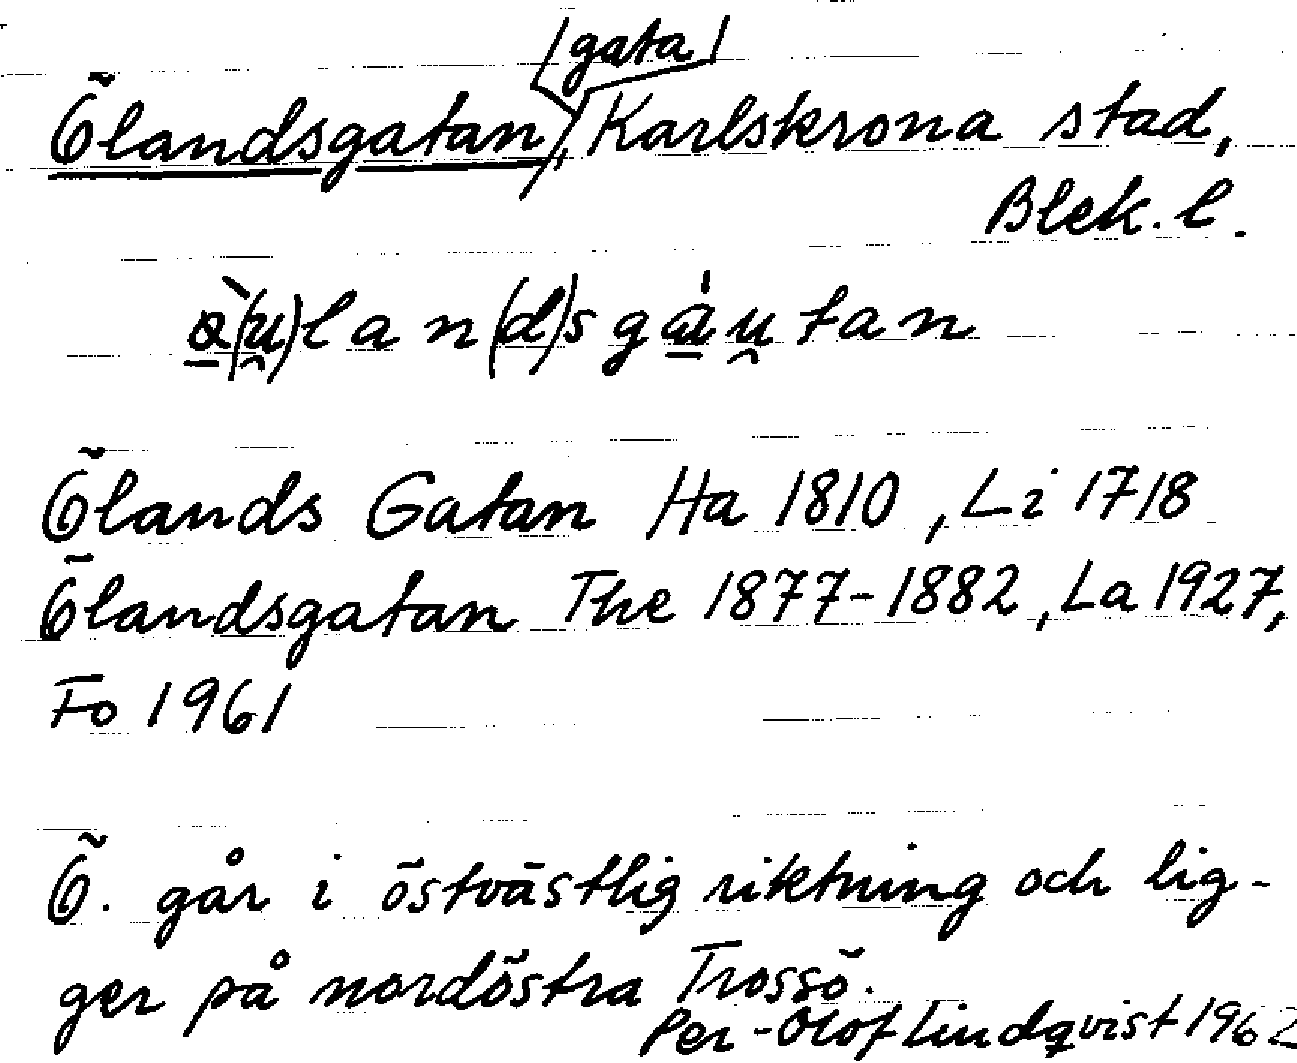 Ölandsgatan, /gata/ Karlskrona stad,
Blek. l.
Ölands Gatan Ha 1810, Li 1718
Ölandsgatan The 1877-1882, La 1927,
Fo 1961
Ö. går i östvästlig riktning och lig-
ger på nordöstra Trossö.
Per-Olof Lindqvist 1962